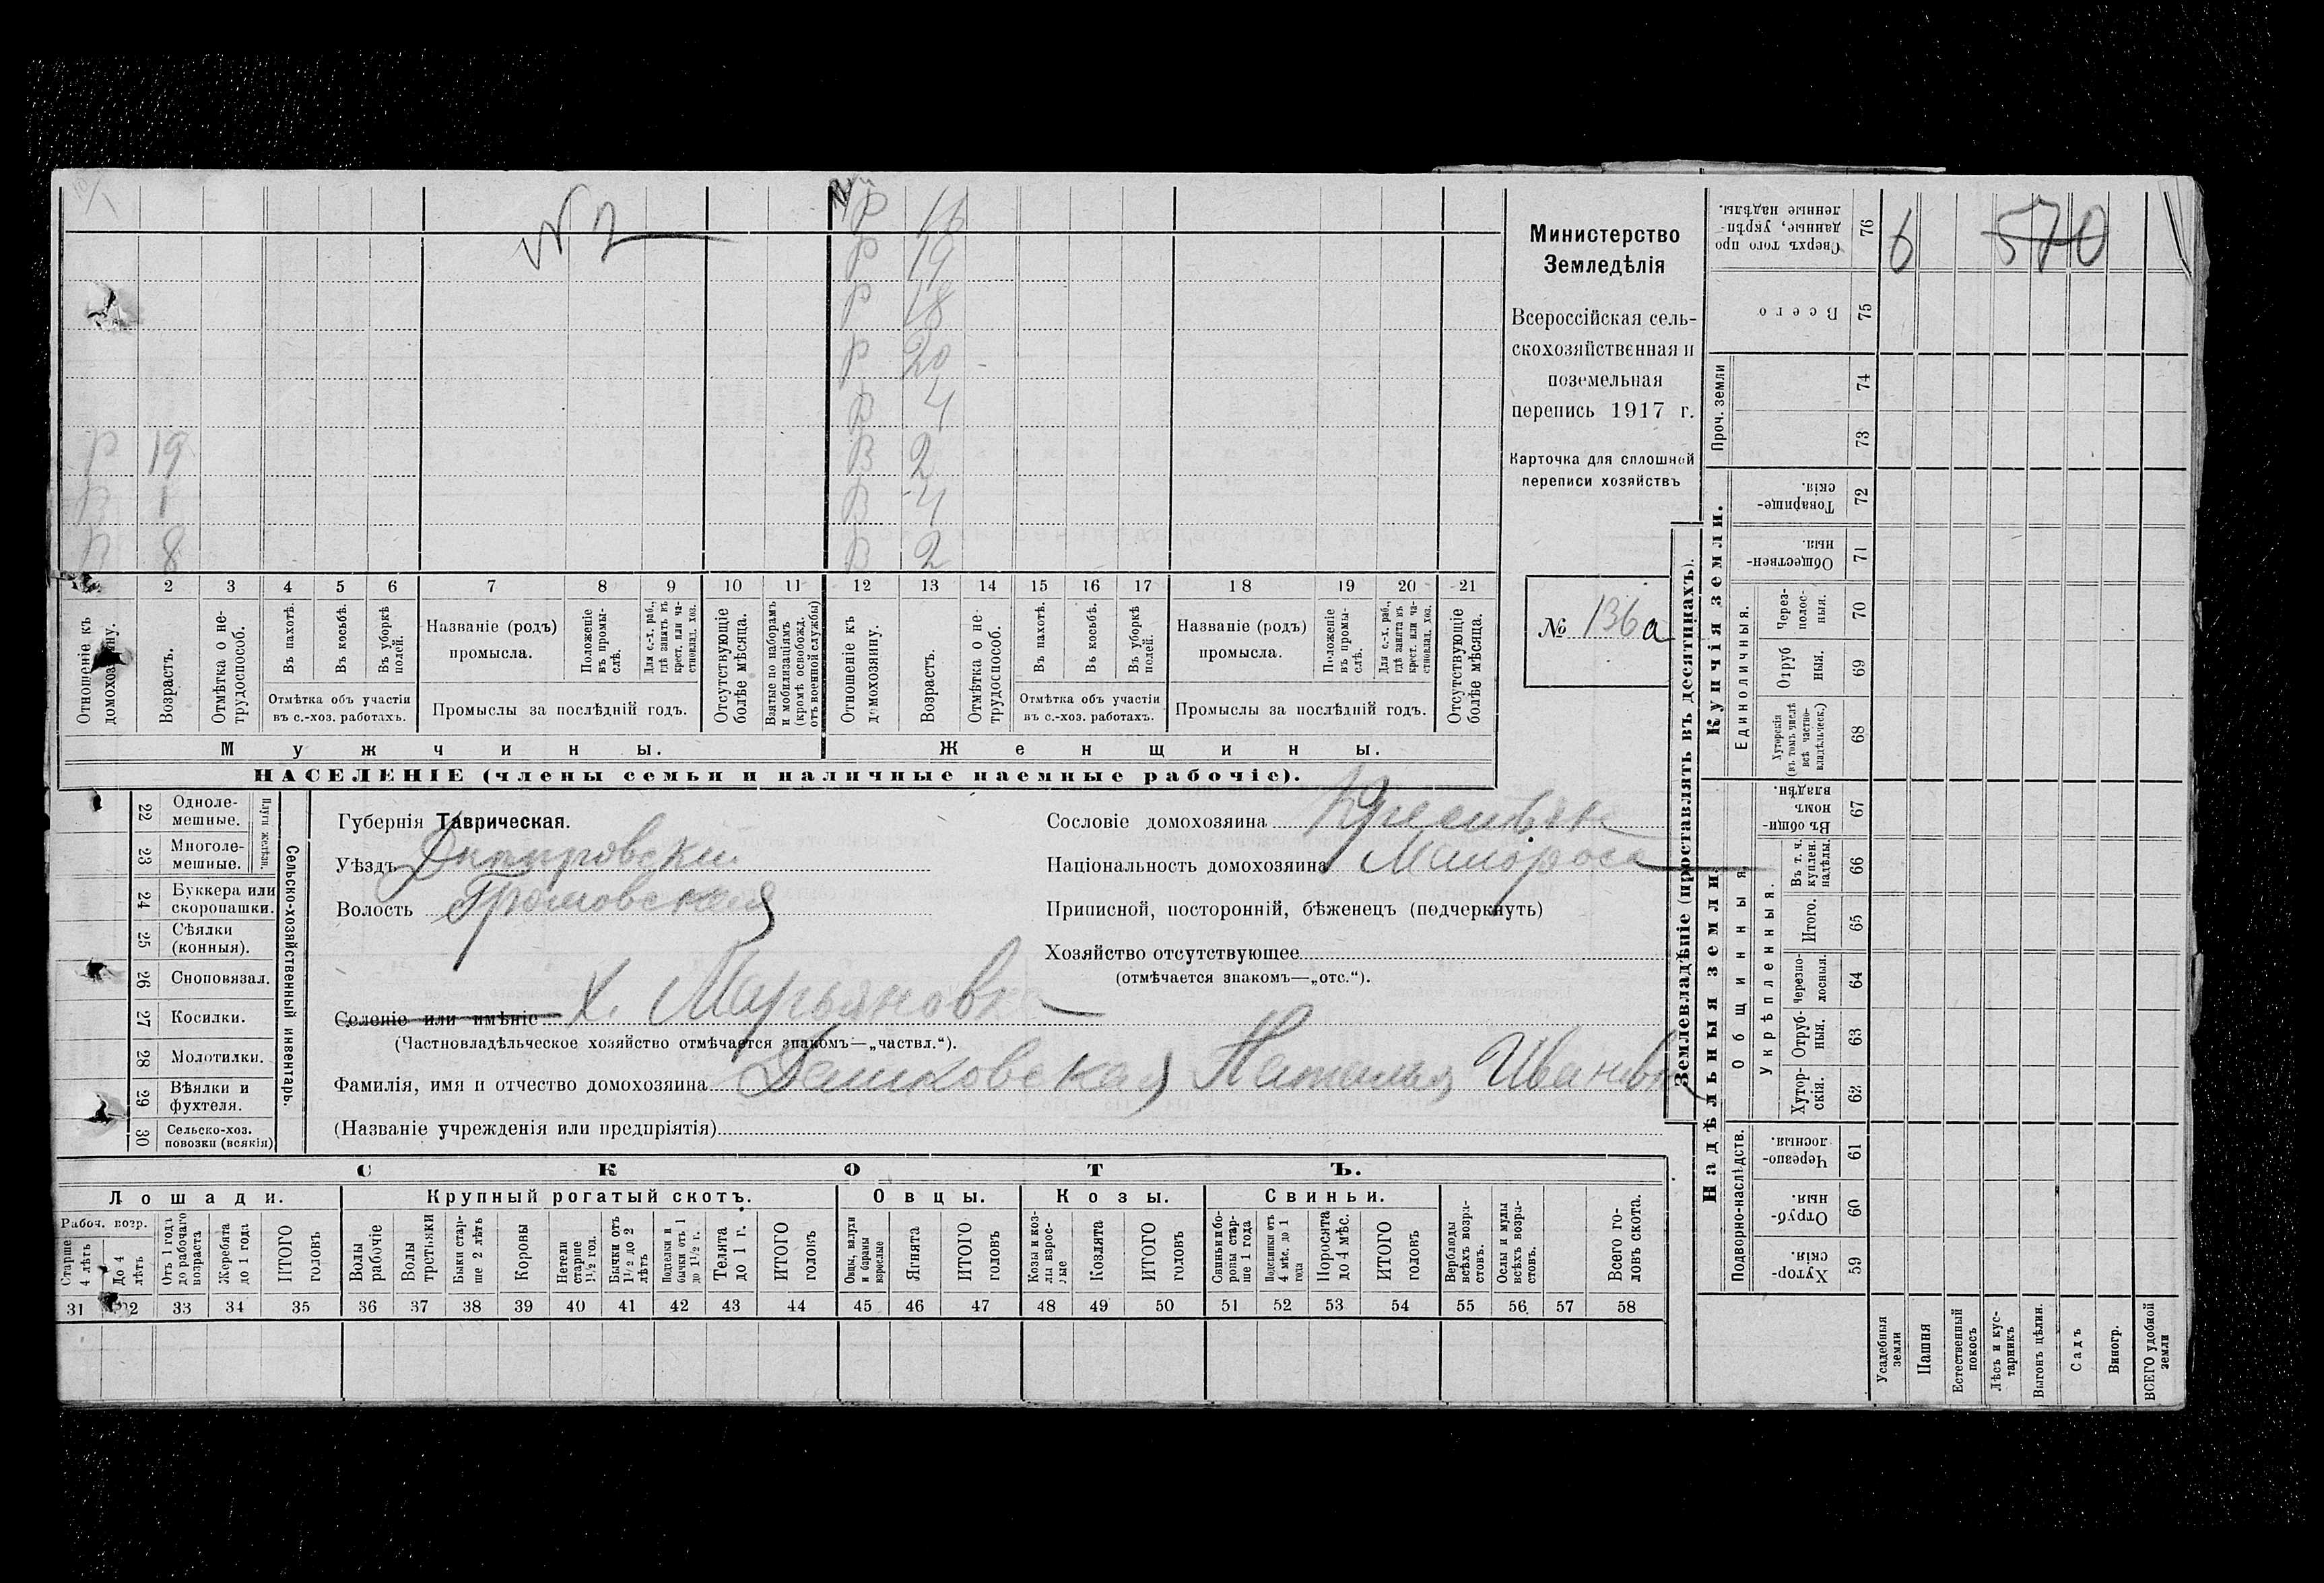 № 2
Р 16
Р 19
Р 18
Р 20
Р 4
Р 19 В 2
В 1 В 4
В 8 В 2
1 2 3 4 5 6 7 8 9 10 11 12 13 14 15 16 17 18 19 20 21
Отношеніе къ домохозяину.
Возрастъ.
Отмѣтка о нетрудоспособ.
Въ пахотѣ.
Въ косьбѣ.
Въ уборкѣ полей.
Отмѣтка объ участіи въ с.-хоз. работахъ.
Названіе (родъ) промысла.
Положеніе въ промыслѣ.
Для с.-х. раб., гдѣ занятъ въ крест. или частновлад. хоз.
Промыслы за послѣдній годъ.
Отсутствующіе болѣе мѣсяца.
Взятые по наборамъ и мобилизаціямъ (кромѣ освобожд. отъ военной службы)
Отношеніе къ домохозяину.
Возрастъ.
Отмѣтка о нетрудоспособ.
Въ пахотѣ.
Въ косьбѣ.
Въ уборкѣ полей.
Отмѣтка объ участіи въ с.-хоз. работахъ.
Названіе (родъ) промысла.
Положеніе въ промыслѣ.
Для с.-х. раб., гдѣ занята въ крест. или частновлад. хоз.
Промыслы за послѣдній годъ.
Отсутствующіе болѣе мѣсяца.
Мужчины. Женщины.
НАСЕЛЕНІЕ (члены семьи и наличные наемные рабочіе).
Министерство
Земледѣлія
Всероссійская сель-
скохозяйственная и
поземельная
перепись 1917 г.
Карточка для сплошной
переписи хозяйствъ
№ 136а
22 Однолемешные.
23 Многолемешные.
Плуги желѣзн.
24 Буккера или скоропашки.
25 Сѣялки (конныя).
26 Сноповязал.
27 Косилки.
28 Молотилки.
29 Вѣялки и фухтеля.
30 Сельско-хоз. повозки (всякія)
Сельско-хозяйственный инвентарь.
Губернія Таврическая.
Уѣздъ Днѣпровскій
Волость Громовская
Селеніе или имѣніе х. Марьяновка
(Частновладѣльческое хозяйство отмѣчается знакомъ—„частвл.“).
Фамилія, имя и отчество домохозяина Дашковская Наталья Ивановна
(Названіе учрежденія или предпріятія)
Сословіе домохозяина Крестьянк
Національность домохозяина Малоросс
Приписной, посторонній, бѣженецъ (подчеркнуть)
Хозяйство отсутствующее
(отмѣчается знакомъ—„отс.“).
СКОТЪ.
Лошади. Крупный рогатый скотъ. Овцы. Козы. Свиньи.
Рабоч. возр.
Старше 4 лѣтъ
До 4 лѣтъ
Отъ 1 года до рабочаго возраста
Жеребята до 1 года
ИТОГО головъ
Волы рабочіе
Волы третьяки
Быки старше 2 лѣтъ
Коровы
Нетели старше 1½ год.
Бычки отъ 1½ до 2 лѣтъ
Подтелки и бычки отъ 1 до 1½ г.
Телята до 1 г.
ИТОГО головъ
Овцы, валухи и бараны взрослые
Ягнята
ИТОГО головъ
Козы и козлы взрослые
Козлята
ИТОГО головъ
Свиньи и боровы старше 1 года
Подсвинки отъ 4 мѣс. до 1 года
Поросята до 4 мѣс.
ИТОГО головъ
Верблюды всѣхъ возрастовъ.
Ослы и мулы всѣхъ возрастовъ.
Всего головъ скота.
31 32 33 34 35 36 37 38 39 40 41 42 43 44 45 46 47 48 49 50 51 52 53 54 55 56 57 58
Землевладѣніе (проставлять въ десятинахъ).
Сверхъ того проданные, укрѣпленные надѣлы. 76 6 570
Всего 75
Проч. земли 74
73
Купчія земли.
Товарищескія. 72
Общественныя. 71
Единоличныя.
Черезполосныя. 70
Отрубныя. 69
Хуторскія (въ томъ числѣ всѣ частновладѣльческ.) 68
Надѣльныя земли.
Общинныя
Въ общинномъ владѣн. 67
Укрѣпленныя.
Въ т. ч. куплен. надѣлы. 66
Итого. 65
Черезполосныя. 64
Отрубныя. 63
Хуторскія. 62
Подворно-наслѣдств.
Черезполосныя. 61
Отрубныя. 60
Хуторскія. 59
Усадебныя земли
Пашня
Естественный покосъ
Лѣсъ и кустарникъ
Выгонъ цѣлин.
Садъ
Виногр.
ВСЕГО удобной земли